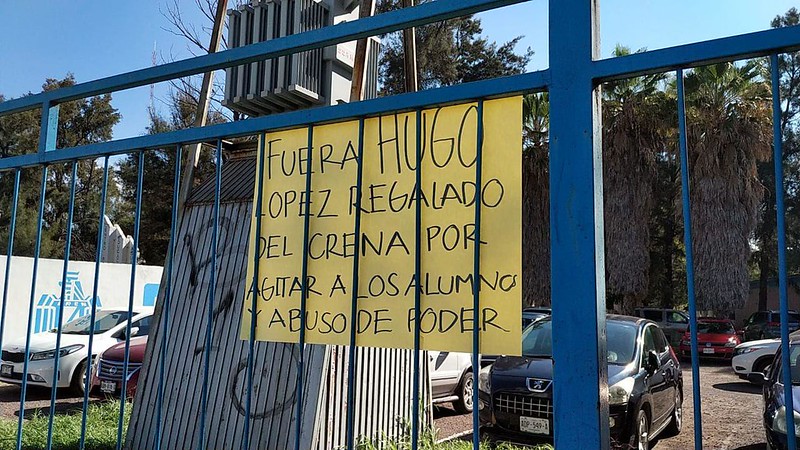 FUERA HUGO
LOPEZ REGALADO
DEL CRENA POR
AGITAR A LOS ALUMNOS
Y ABUSO DE PODER